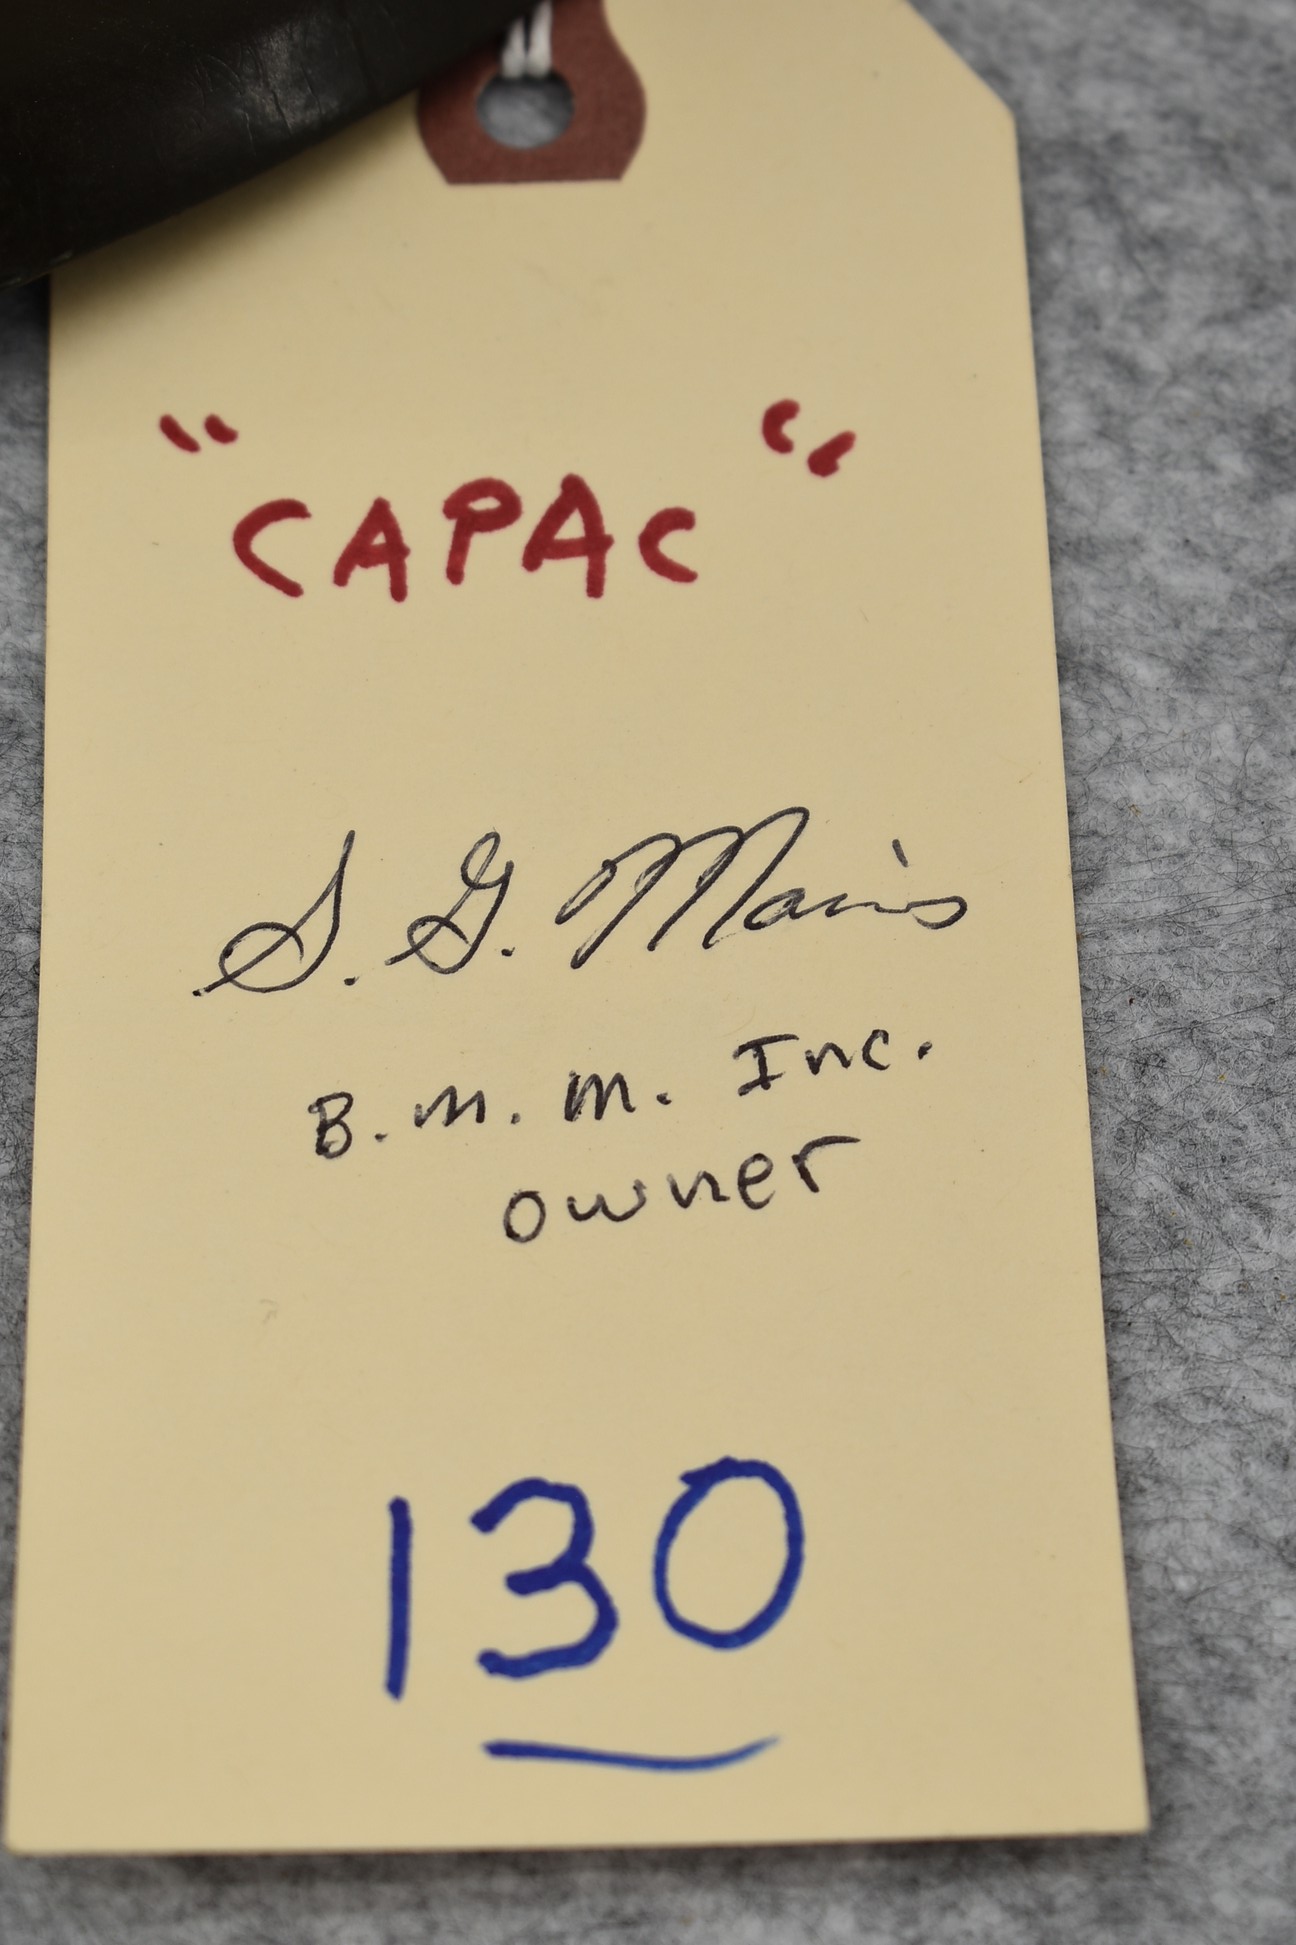 "CAPAC"
S. G. Mains
B.M.M. Inc.
owner
130